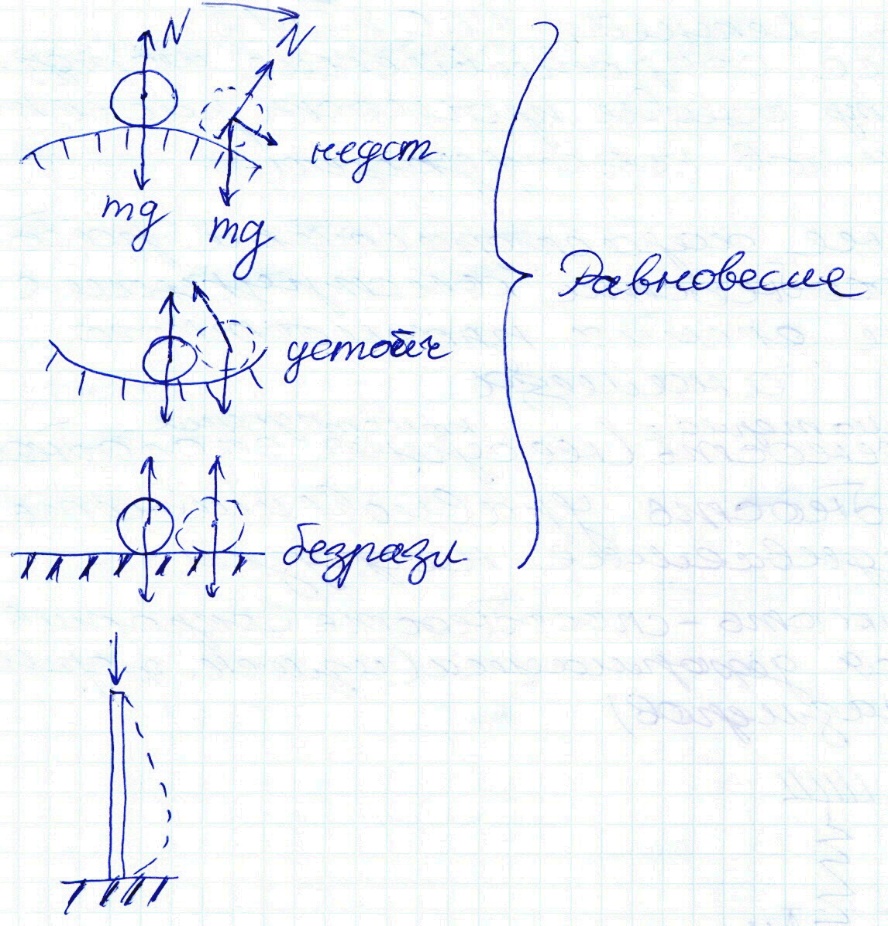 N N
неуст
mg
mg
Равновесие
устойч
безразл